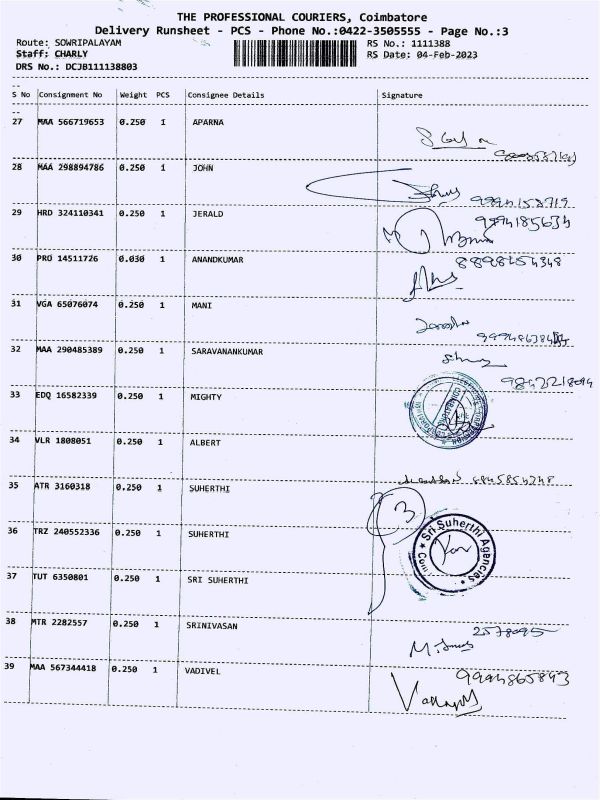 THE PROFESSIONAL COURIERS, Coimbatore
Delivery Runsheet - PCS - Phone No.:0422-3505555 - Page No.:3
Route: SOWRIPALAYAM RS No.: 1111388
Staff: CHARLY RS Date: 04-Feb-2023
DRS No.: DCJB111138803
S No Consignment No Weight PCS Consignee Details Signature
27 MAA 566719653 0.250 1 APARNA
28 MAA 298894786 0.250 1 JOHN
9994158719
29 HRD 324110341 0.250 1 JERALD 9994185634
30 PRO 14511726 0.030 1 ANANDKUMAR 8898154348
31 VGA 65076074 0.250 1 MANI
32 MAA 290485389 0.250 1 SARAVANANKUMAR
9842218094
33 EDQ 16582339 0.250 1 MIGHTY
34 VLR 1808051 0.250 1 ALBERT
35 ATR 3160318 0.250 1 SUHERTHI
3
36 TRZ 240552336 0.250 1 SUHERTHI
Sri Suherthi Agencies
37 TUT 6350801 0.250 1 SRI SUHERTHI
38 MTR 2282557 0.250 1 SRINIVASAN 2578095
39 MAA 567344418 0.250 1 VADIVEL 9994865843